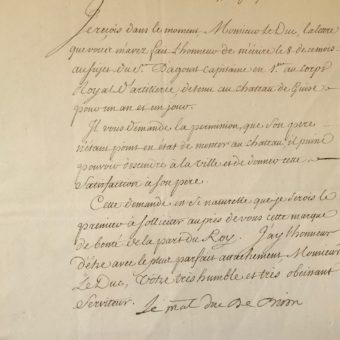 Je reçois dans le moment Monsieur Le Duc, la lettre
que vous m'avez fait l'honneur de m'écrire le 8 de ce mois
au sujet du Sr. Dagoult capitaine en 1er. au corps
Royal D'artillerie, detenu au chateau de Guise
pour un an et un jour.
Il vous demande la permission, que son pere
n'étant point en état de monter au chateau, il puisse
pouvoir descendre à la ville et de donner cette
Satisfaction à son pere.
Cette demande est si naturelle que je serois le
premier à solliciter auprès de vous cette marque
de bonté de la part du Roy. J'ay l'honneur
d'être avec le plus parfait attachement Monsieur
Le Duc, Votre très humble et très obeissant
Serviteur. Le mal duc De Biron